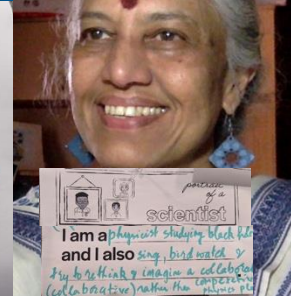 portrait
of a
scientist
I am a physicist studying black hole
and I also sing, bird watch &
try to rethink & imagine a collaborat
(collaborative) rather than competetive
physics pla